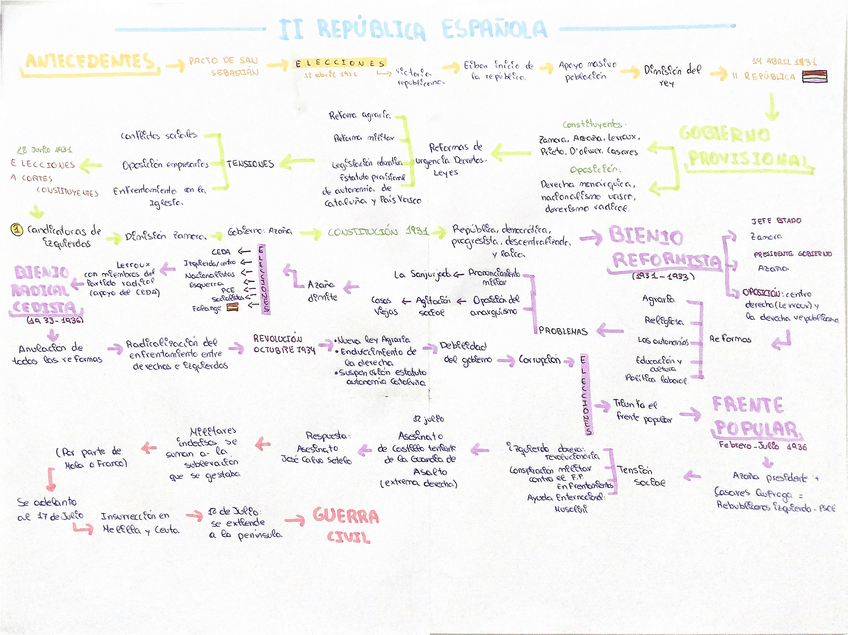 II REPÚBLICA ESPAÑOLA
ANTECEDENTES
PACTO DE SAN
SEBASTIÁN
ELECCIONES
12 abril 1931
Victoria
republicana.
Eibar inicio de
la república.
Apoyo masivo
población
Dimisión del
rey
14 ABRIL 1931
II REPÚBLICA
GOBIERNO
PROVISIONAL
Constituyentes:
Zamora, Azaña, Lerroux,
Prieto, D'olwer, Casares
Oposición:
Derecha monárquica,
nacionalismo vasco,
Reformas de
urgencia Decretos-
Leyes
Reforma agraria
Reforma militar
Legislación
Estatuto provisional
de autonomía de
Cataluña y País Vasco
TENSIONES
Conflictos sociales
Oposición empresarios
Enfrentamiento con la
Iglesia.
28 Junio 1931
ELECCIONES
A CORTES
CONSTITUYENTES
1 Candidaturas de
izquierdas
Dimisión Zamora
Gobierno: Azaña
CONSTITUCIÓN 1931
República, democrática,
progresista, descentralizada,
y laica.
BIENIO
REFORMISTA
(1931-1933)
JEFE ESTADO
Zamora
PRESIDENTE GOBIERNO
Azaña
OPOSICIÓN: centro
derecha (Lerroux) y
la derecha republicana
Reformas
Agraria
Religiosa
Las autonomías
Educación y
cultura
Política laboral
PROBLEMAS
Pronunciamiento
militar
La Sanjurjada
Oposición del
anarquismo
Agitación
social
Casas
Viejas
Azaña
dimite
ELECCIONES
CEDA
Izquierda
Nacionalistas
Esquerra
PCE
Socialistas
Falange
Lerroux
con miembros del
Partido radical
(apoyo del CEDA)
BIENIO
RADICAL
CEDISTA
(1933-1936)
Anulación de
todas las reformas
Radicalización del
enfrentamiento entre
derechas e izquierdas
REVOLUCIÓN
OCTUBRE 1934
• Nueva ley Agraria
• Endurecimiento de
la derecha
• Suspensión estatuto
autonomía Cataluña
Debilidad
del gobierno
Corrupción
ELECCIONES
Triunfa el
frente popular
FRENTE
POPULAR
Febrero-Julio 1936
Azaña presidente +
Casares Quiroga =
Republicanos izquierda - PSOE
Tensión
social
Izquierda obrera:
revolucionaria
Conspiración militar
contra el F.P
Enfrentamientos
Ayuda Internacional:
Mussolini
12 julio
Asesinato
de Castillo teniente
de la Guardia de
Asalto
(extrema derecha)
Respuesta:
Asesinato
José Calvo Sotelo
Militares
indecisos se
suman a la
sublevación
que se gestaba
(Por parte de
Mola o Franco)
Se adelanta
al 17 de Julio
Insurrección en
Melilla y Ceuta.
18 de Julio:
se extiende
a la península.
GUERRA
CIVIL